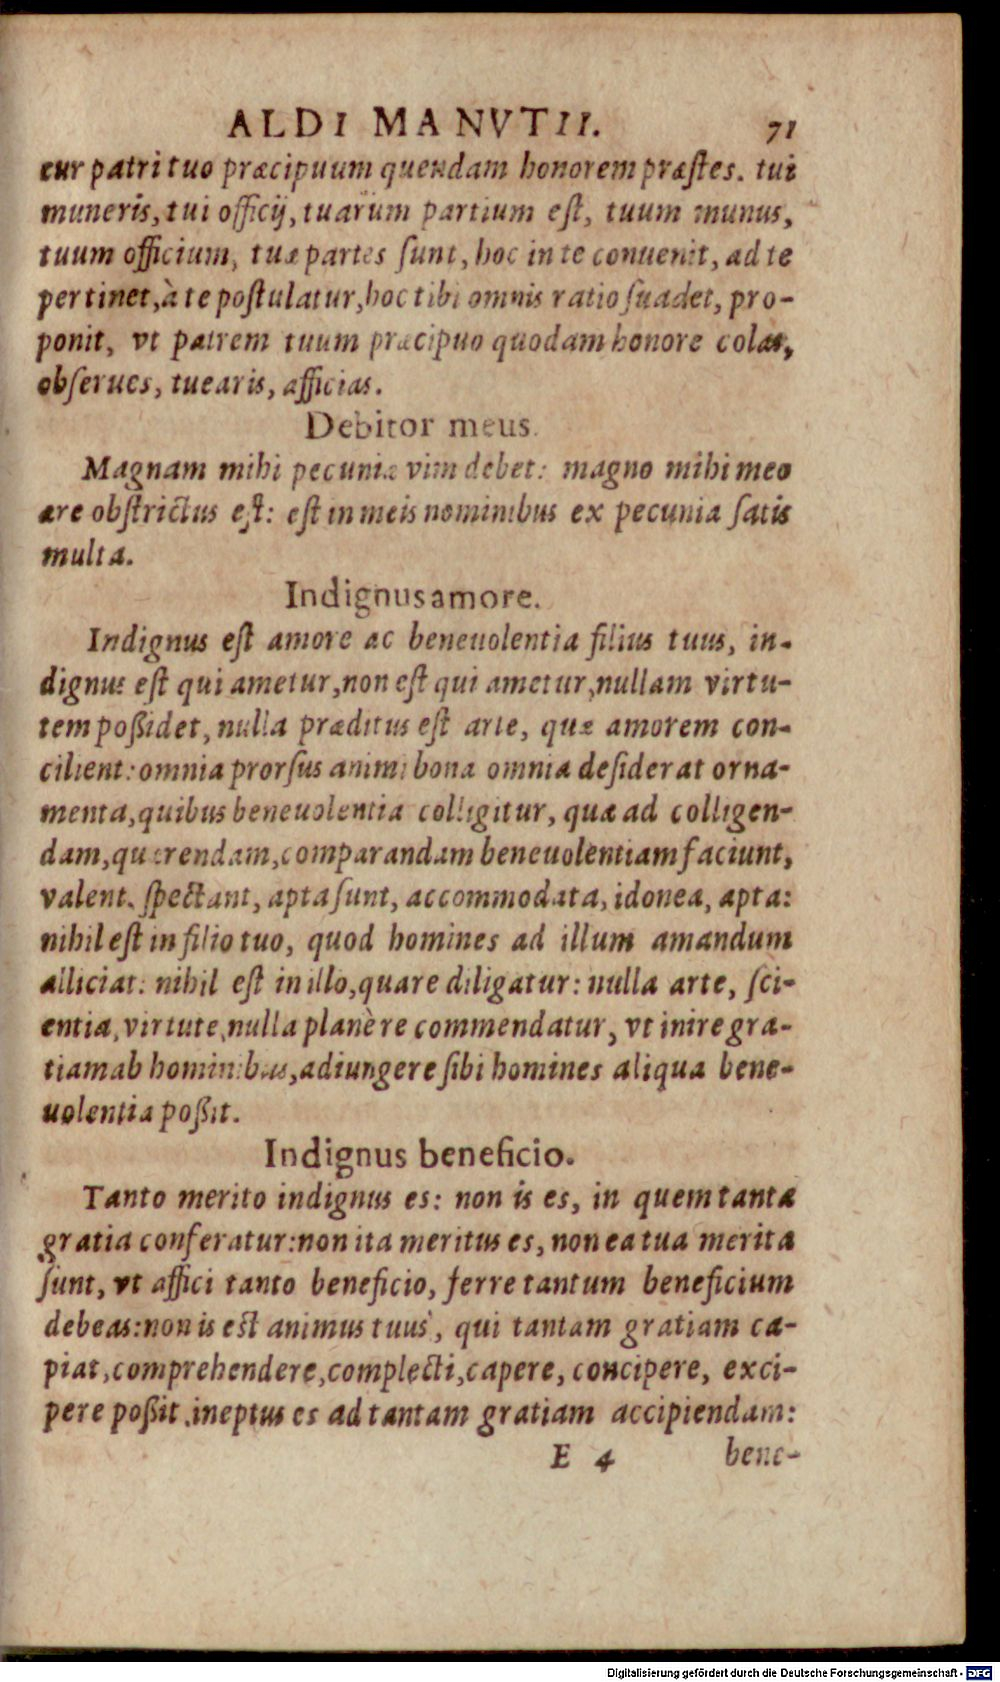 ALDI MANVTII. 71
cur patri tuo præcipuum quendam honorem præſtes. tui
muneris, tui officij, tuarum partium eſt, tuum munus,
tuum officium, tuæ partes ſunt, hoc in te conuenit, ad te
pertinet, à te poſtulatur, hoc tibi omnis ratio ſuadet, pro-
ponit, vt patrem tuum præcipuo quodam honore colas,
obſerues, tuearis, afficias.
Debitor meus.
Magnam mihi pecuniæ vim debet: magno mihi meo
ære obſtrictus eſt: eſt in meis nominibus ex pecunia ſatis
multa.
Indignus amore.
Indignus eſt amore ac beneuolentia filius tuus, in-
dignus eſt qui ametur, non eſt qui ametur, nullam virtu-
tem poßidet, nulla præditus eſt arte, quæ amorem con-
cilient: omnia prorſus animi bona omnia deſiderat orna-
menta, quibus beneuolentia colligitur, quæ ad colligen-
dam, quærendam, comparandam beneuolentiam faciunt,
valent, ſpectant, apta ſunt, accommodata, idonea, apta:
nihil eſt in filio tuo, quod homines ad illum amandum
alliciat: nihil eſt in illo, quare diligatur: nulla arte, ſci-
entia, virtute, nulla planè re commendatur, vt inire gra-
tiam ab hominibus, adiungere ſibi homines aliqua bene-
uolentia poßit.
Indignus beneficio.
Tanto merito indignus es: non is es, in quem tanta
gratia conferatur: non ita meritus es, non ea tua merita
ſunt, vt affici tanto beneficio, ferre tantum beneficium
debeas: non is est animus tuus, qui tantam gratiam ca-
piat, comprehendere, complecti, capere, concipere, exci-
pere poßit. ineptus es ad tantam gratiam accipiendam:
E 4 bene-
Digitalisierung gefördert durch die Deutsche Forschungsgemeinschaft - DFG